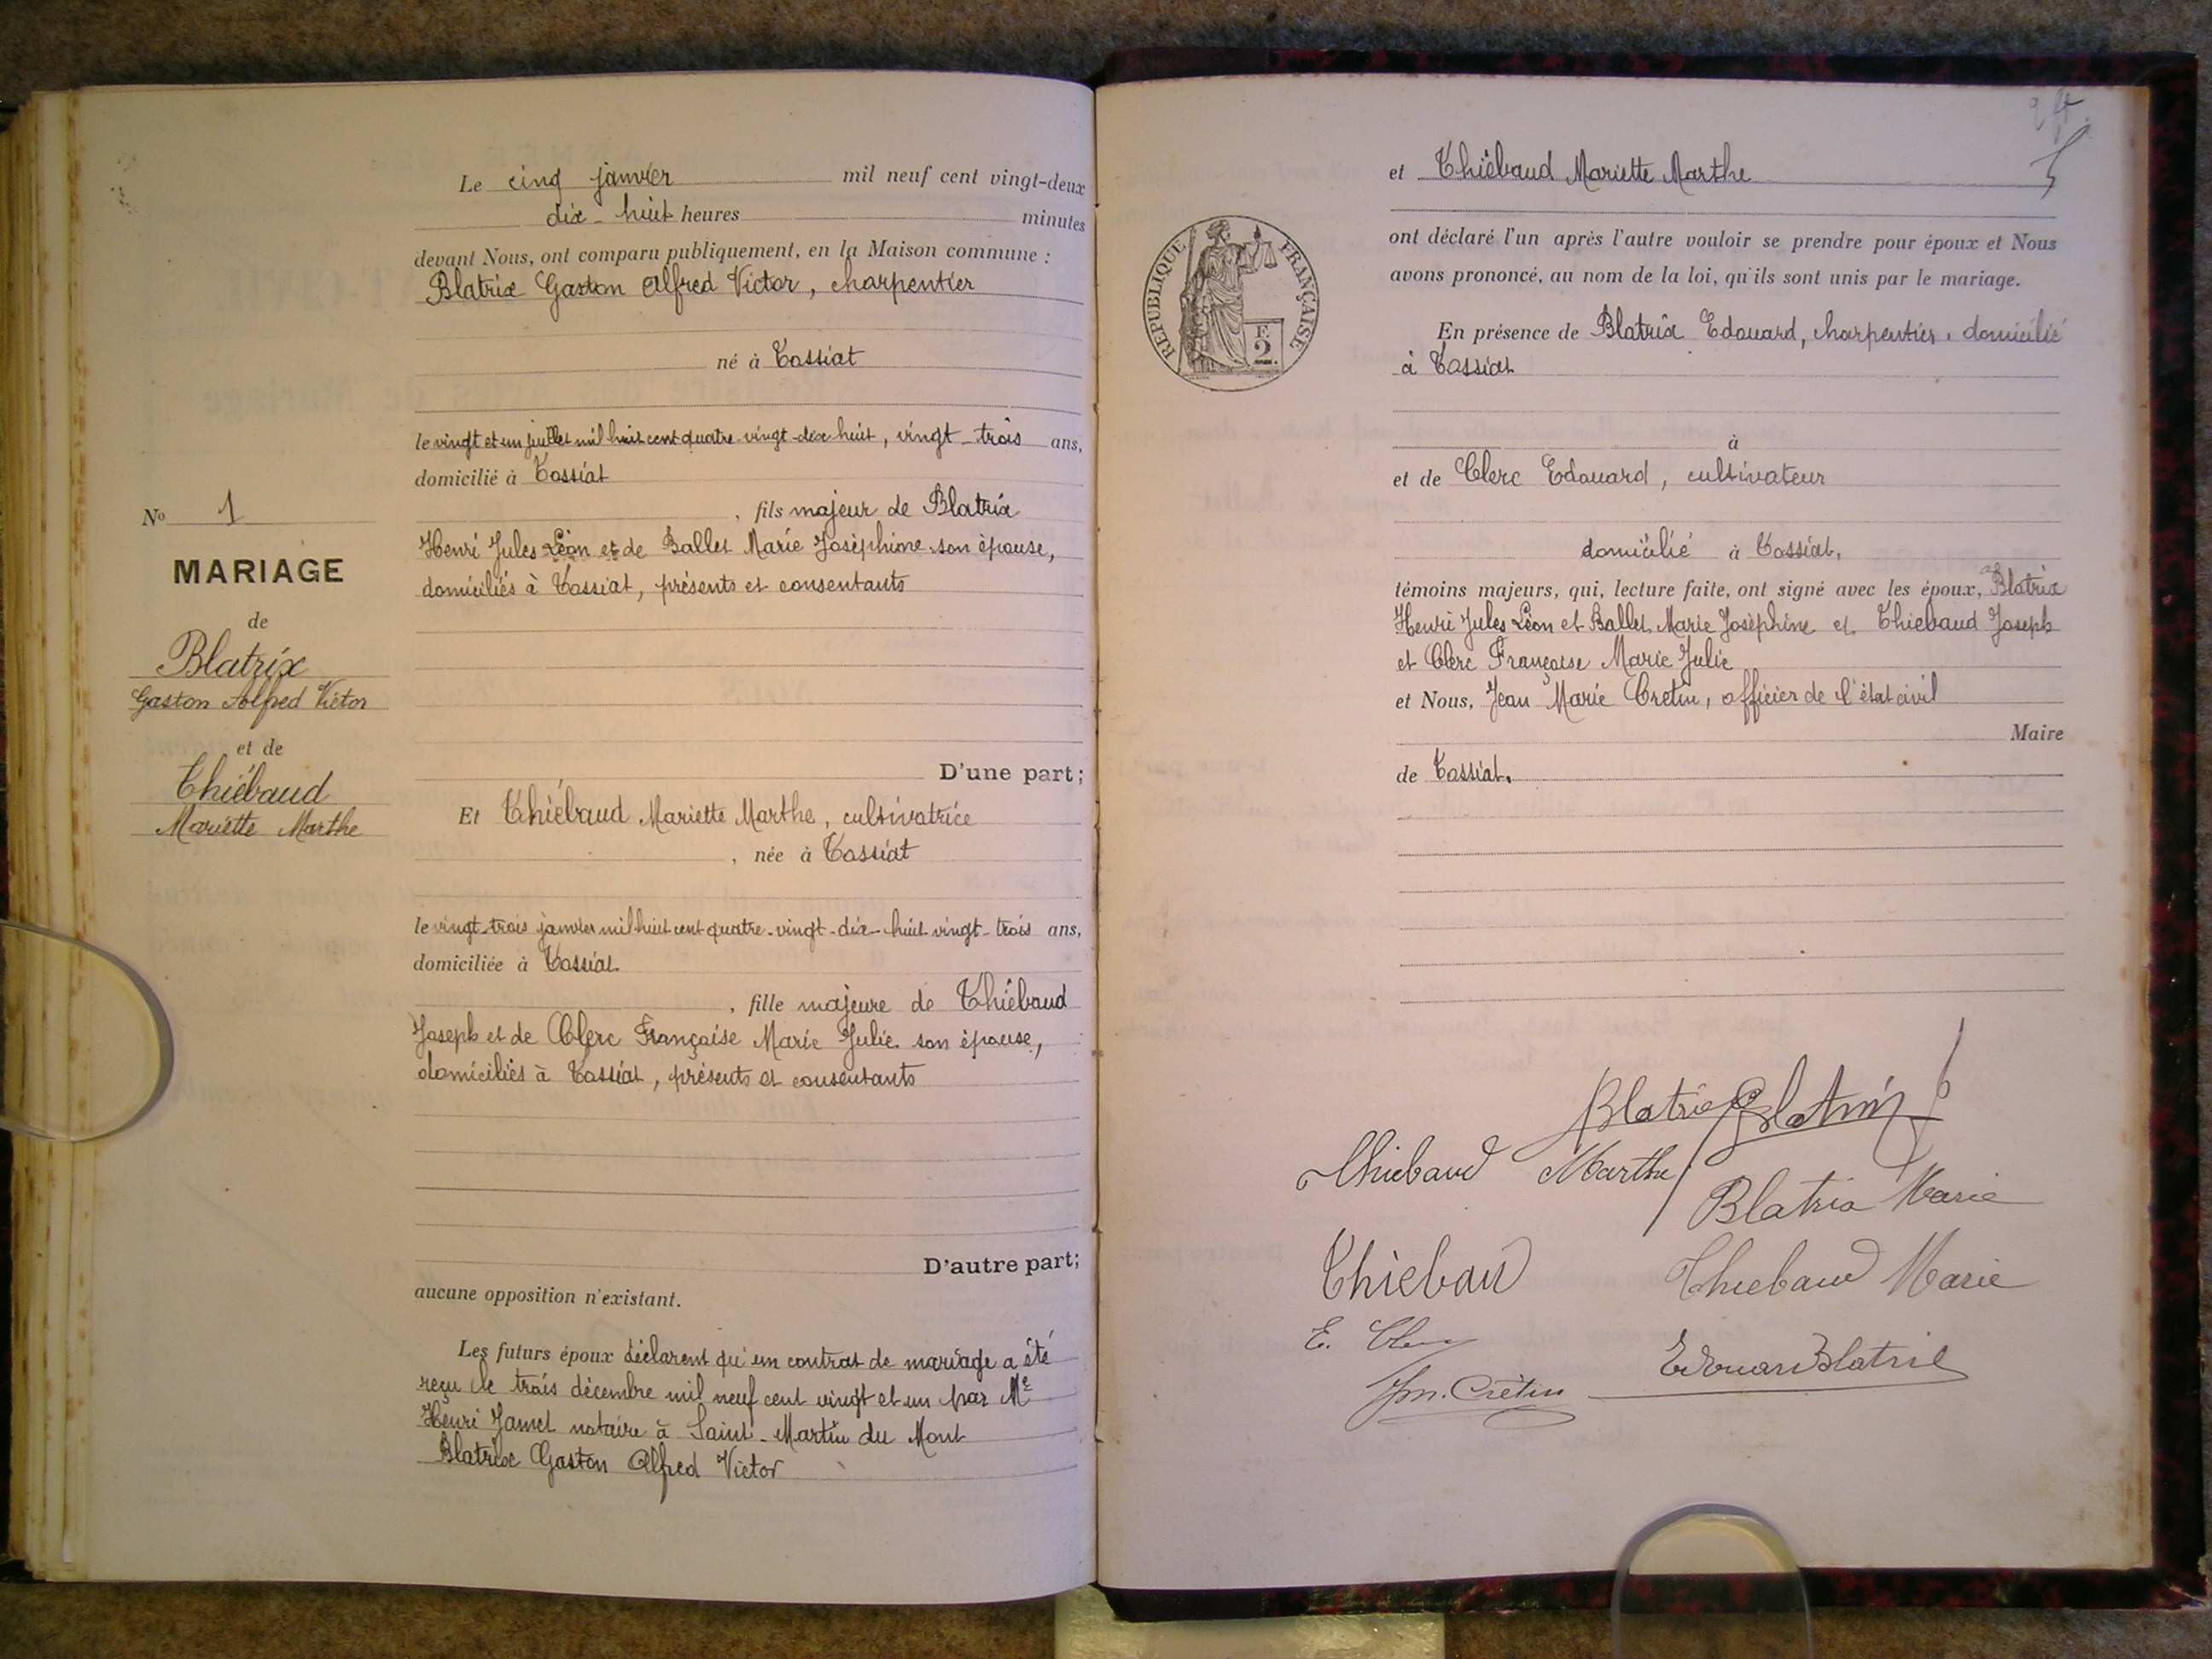 Le cinq janvier mil neuf cent vingt-deux
dix-huit heures minutes
devant Nous, ont comparu publiquement, en la Maison commune :
Blatrix Gaston Alfred Victor, charpentier
né à Tossiat
le vingt et un juillet mil huit cent quatre-vingt-dix huit, vingt-trois ans,
domicilié à Tossiat
, fils majeur de Blatrix
Henri Jules Léon et de Ballet Marie Joséphine son épouse,
domiciliés à Tossiat, présents et consentants
D'une part;
Et Thiébaud Mariette Marthe, cultivatrice
, née à Tossiat
le vingt-trois janvier mil huit cent quatre-vingt-dix-huit vingt-trois ans,
domiciliée à Tossiat
, fille majeure de Thiébaud
Joseph et de Clerc Françoise Marie Julie son épouse,
domiciliés à Tossiat, présents et consentants
D'autre part;
aucune opposition n'existant.
Les futurs époux déclarent qu'un contrat de mariage a été
reçu le trois décembre mil neuf cent vingt et un par Me
Henri Jamet notaire à Saint-Martin du Mont
Blatrix Gaston Alfred Victor
No 1
MARIAGE
de
Blatrix
Gaston Alfred Victor
et de
Thiébaud
Mariette Marthe
et Thiébaud Mariette Marthe
ont déclaré l'un après l'autre vouloir se prendre pour époux et Nous
avons prononcé, au nom de la loi, qu'ils sont unis par le mariage.
RÉPUBLIQUE FRANÇAISE
F.
2
En présence de Blatrix Edouard, charpentier, domicilié
à Tossiat
à
et de Clerc Edouard, cultivateur
domicilié à Tossiat,
témoins majeurs, qui, lecture faite, ont signé avec les époux, Blatrix
Henri Jules Léon et Ballet Marie Joséphine et Thiebaud Joseph
et Clerc Françoise Marie Julie
et Nous, Jean Marie Cretin, officier de l'état civil
Maire
de Tossiat.
Blatrix Blatrix
Thiebaud Marthe
Blatrix Marie
Thiebaud
Thiebaud Marie
E. Clerc
Edouard Blatrix
Jm. Crétin